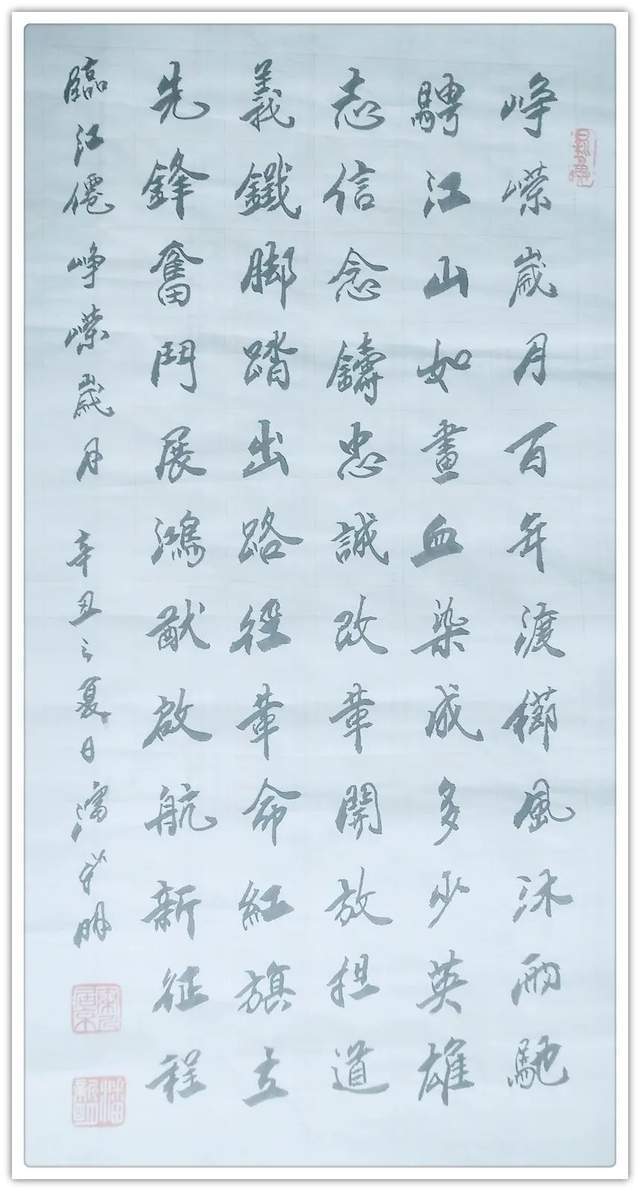 崢嶸歲月百年渡櫛風沐雨馳
騁江山如畫血染成多少英雄
志信念鑄忠誠改革開放担道
義鐵脚踏出路径革命紅旗立
先鋒奮鬥展鴻猷啟航新征程
臨江僊 崢嶸歲月 辛丑之夏日 明